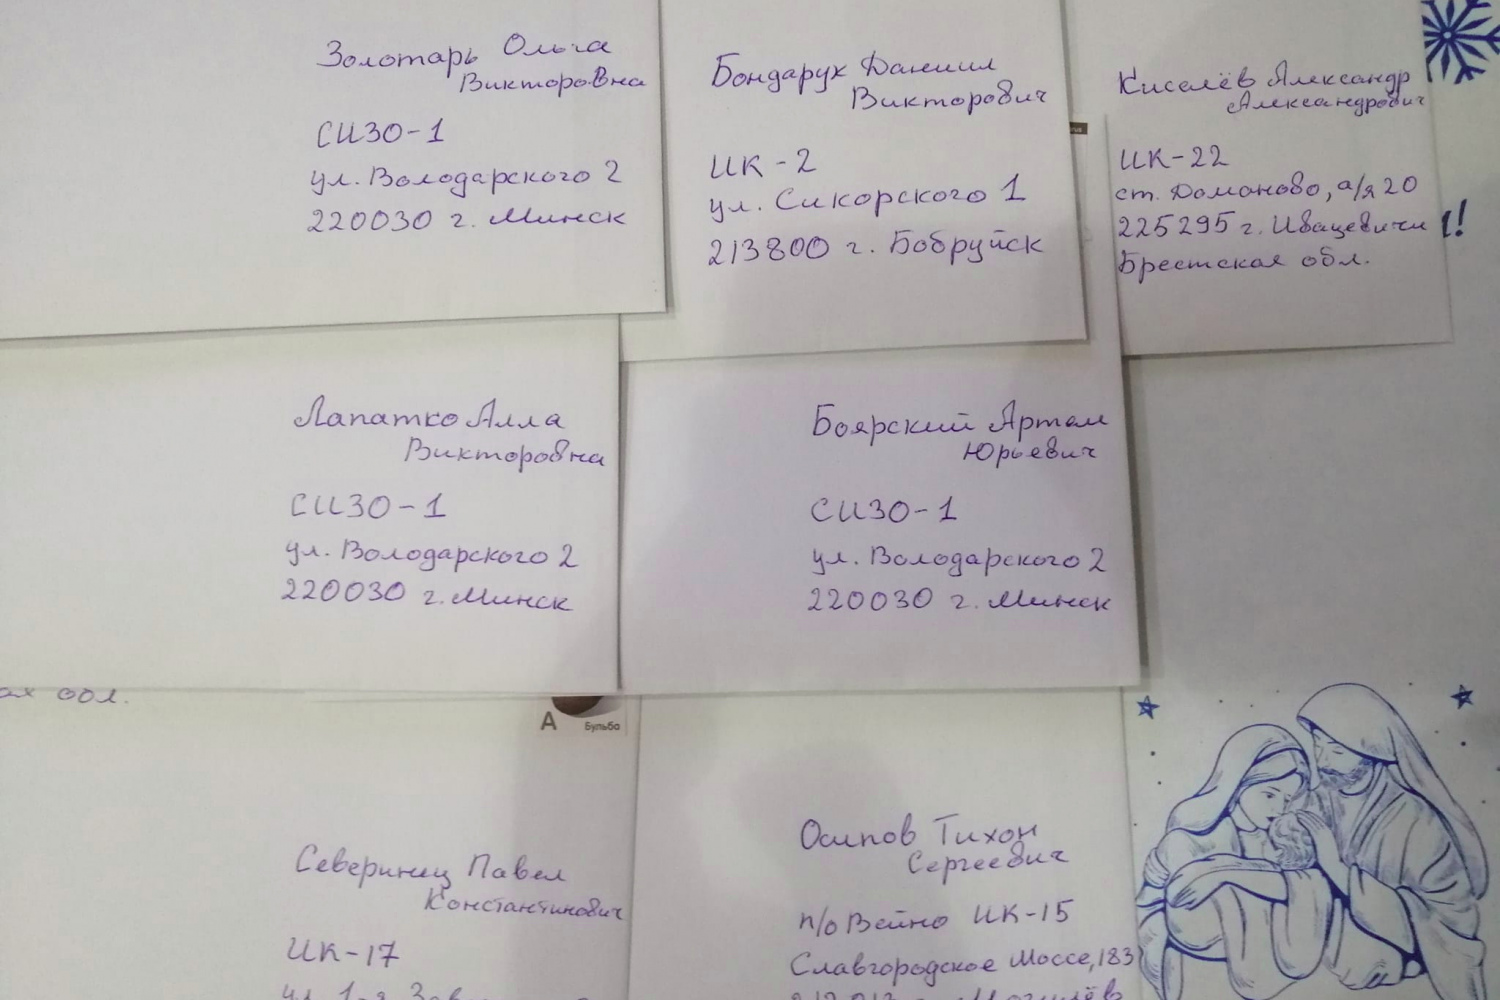 Золотарь Ольга
Викторовна
СИЗО-1
ул. Володарского 2
220030 г. Минск
Бондарук Даниил
Викторович
ИК-2
ул. Сикорского 1
213800 г. Бобруйск
Киселёв Александр
Александрович
ИК-22
ст. Доманово, а/я 20
225295 г. Ивацевичи
Брестская обл.
!
Лапатко Алла
Викторовна
СИЗО-1
ул. Володарского 2
220030 г. Минск
Боярский Артем
Юрьевич
СИЗО-1
ул. Володарского 2
220030 г. Минск
обл.
А
Бульба
Северинец Павел
Константинович
ИК-17
ул. 1-я
Осипов Тихон
Сергеевич
п/о Вейно ИК-15
Славгородское Шоссе, 183
Могилёв